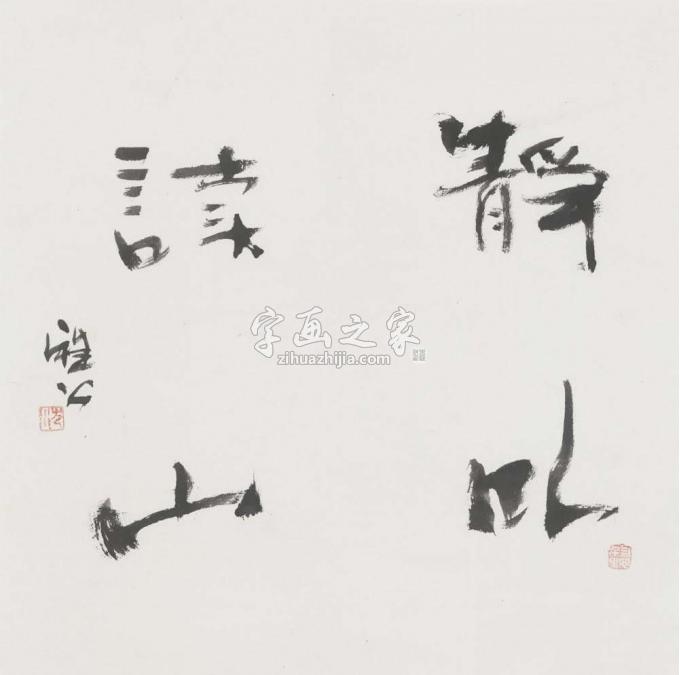 靜以
讀山
字画之家
zihuazhijia.com